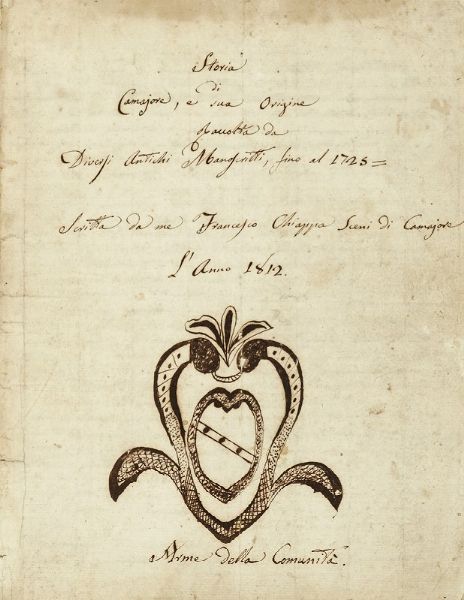 Storia
di
Camajore, e sua Origine
Racolta da
Diversi Antichi Manscritti, fino al 1723=
Scritta da me Francesco Chiappa Sceni di Camajore
L'Anno 1812.
Arme della Comunità.